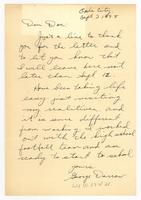 Sept. 7, 1955
Dear Don:
Just a line to thank
you for the letter and
to let you know that
I will leave here not
later than Sept. 12.
Have been taking life
easy just visiting
my relatives and
it is some different
from working. I worked
out with the high school
football team and am
ready to start to school
yours
George Darrow